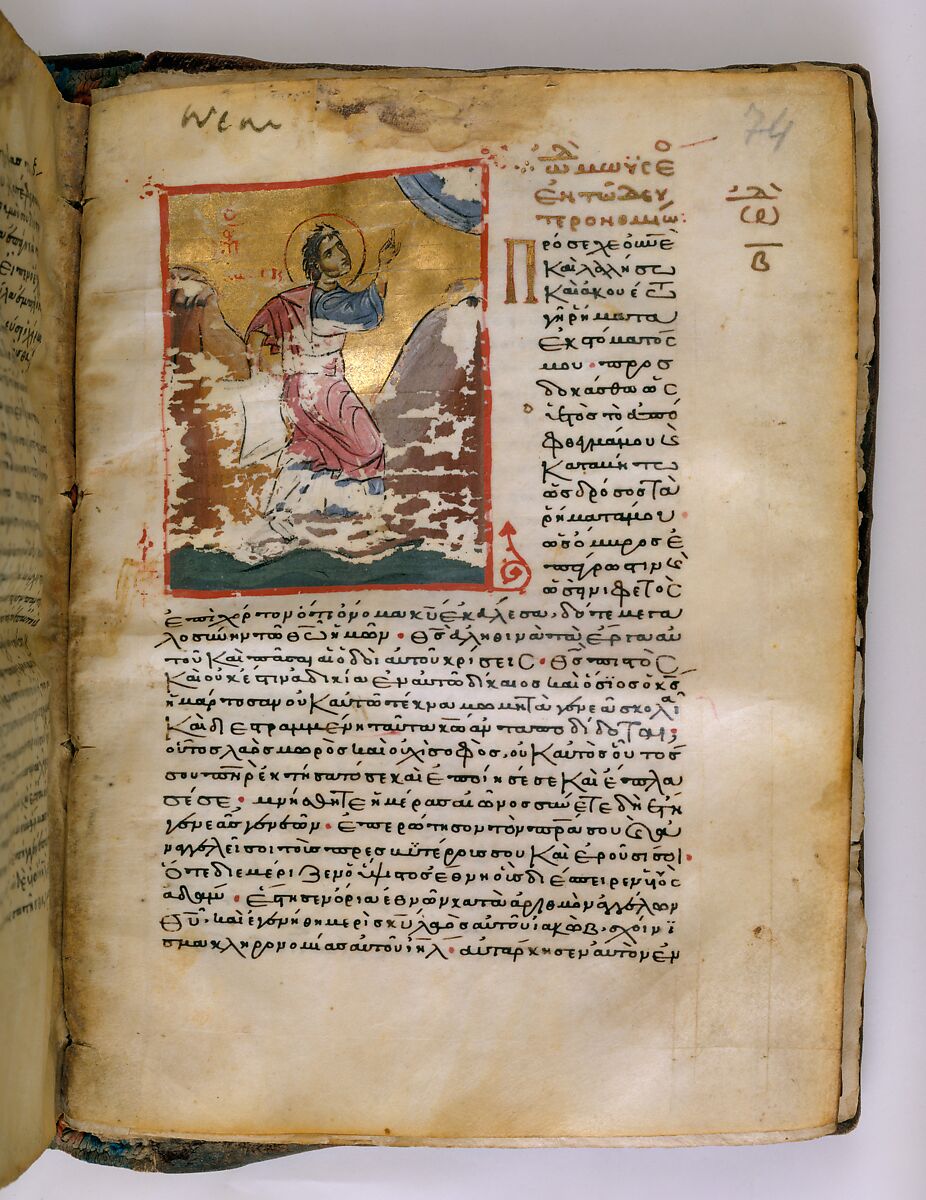 74
ᾠδὴ Μωυσέ
ἐκ τοῦ Δευ
τερονομίου
Πρόσεχε οὐνὲ
καὶ λαλήσω
καὶ ἀκουέτω
γῆ ῥήματα
ἐκ στόματός
μου · προσ
δοκάσθω ὡς
ὑετὸς τὸ ἀπό
φθεγμά μου ϗ
καταβήτω
ὡς δρόσος τὰ
ῥήματά μου ·
ὡσὶ ὄμβρος ἐ
π' ἄγρωστιν ϗ
ὡσεὶ νιφετὸς
ἐπὶ χόρτον ὅτι ὄνομα κυ ἐκάλεσα, δότε μεγα
λοσύνην τῷ θῶ ἡμῶν · θς ἀληθινὰ τὰ ἔργα αὐ
τοῦ καὶ πᾶσαι αἱ ὁδοὶ αὐτοῦ κρίσεις · θς πιστὸς
καὶ οὐκ ἔστιν ἀδικία ἐν αὐτῷ δίκαιος καὶ ὅσιος ὁ κς
ἡμάρτοσαν οὐκ αὐτῷ τέκνα μωμητὰ γενεὰ σκολιὰ
καὶ διεστραμμένη ταῦτα κω ἀνταποδίδοται;
οὗτος λαὸς μωρὸς καὶ οὐχὶ σοφός, οὐκ αὐτὸς οὗτός
σου πηρ ἐκτήσατό σε καὶ ἐποίησέ σε καὶ ἔπλα
σέ σε · μνήσθητε ἡμέρας αἰῶνος σύνετε δὴ ἔτη
γενεὰς γενεῶν · ἐπερώτησον τὸν πρα σου ϗ ἀνα
γγελεῖ σοι τοὺς πρεσβυτέρους σου καὶ ἐροῦσί σοι ·
ὅτε διεμέριζεν ὁ ὕψιστος ἔθνη οἷς διέσπειρεν υἱοὺς
ἀδάμ · ἔστησεν ὅρια ἐθνῶν κατὰ ἀριθμὸν ἀγγέλων
θυ, καὶ ἐγενήθη μερὶς κυ λαὸς αὐτοῦ ἰακώβ, σχοίνι
σμα κληρονομίας αὐτοῦ ιηλ · αὐτάρκησεν αὐτὸν ἐν